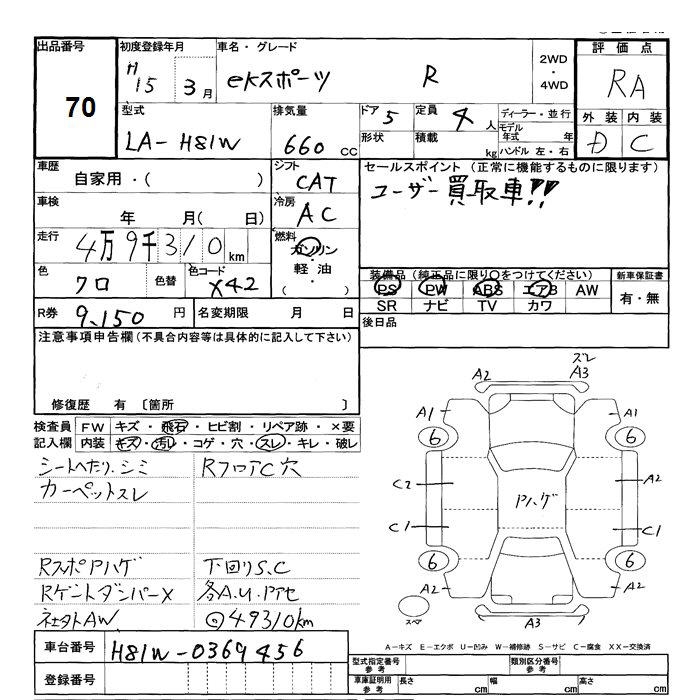 出品番号 初度登録年月 車名・グレード 評価点
70
H15 3月 eKスポーツ R 2WD・4WD RA
型式 排気量 ドア 5 定員 4人 ディーラー・並行 外装 内装
LA-H81W 660cc 形状 積載 kg モデル年式 年 ハンドル 左・右 D C
車歴 シフト セールスポイント (正常に機能するものに限ります)
自家用・( ) CAT ユーザー買取車!!
車検 年 月( 日) 冷房 AC
走行 4万9千310km 燃料 ガソリン・軽油・( )
装備品(純正品に限り○をつけてください) 新車保証書
色 クロ 色替 色コード X42 PS PW ABS エアB AW 有・無
SR ナビ TV カワ
R券 9,150円 名変期限 月 日 後日品
注意事項申告欄(不具合内容等は具体的に記入して下さい)
修復歴 有 〔箇所 〕
検査員 FW キズ・飛石・ヒビ割・リペア跡・×要
記入欄 内装 キズ・汚れ・コゲ・穴・スレ・キレ・破レ
シートヘたり.シミ RフロアC穴
カーペットスレ
RスポPハゲ 下回りS.C
RゲートダンパーX 各A.U.
AW ◎49310km
ズレ
A2 A3
A1 A1
6 6
C2 A2
Pハゲ
C1 C1
6 6
A2 A2
スペア A3
A-キズ E-エクボ U-凹み W-補修跡 S-サビ C-腐食 XX-交換済
車台番号 H81W-0369456
登録番号
型式指定番号 参考 類別区分番号 参考
車庫証明用 参考 長さ cm 幅 cm 高さ cm